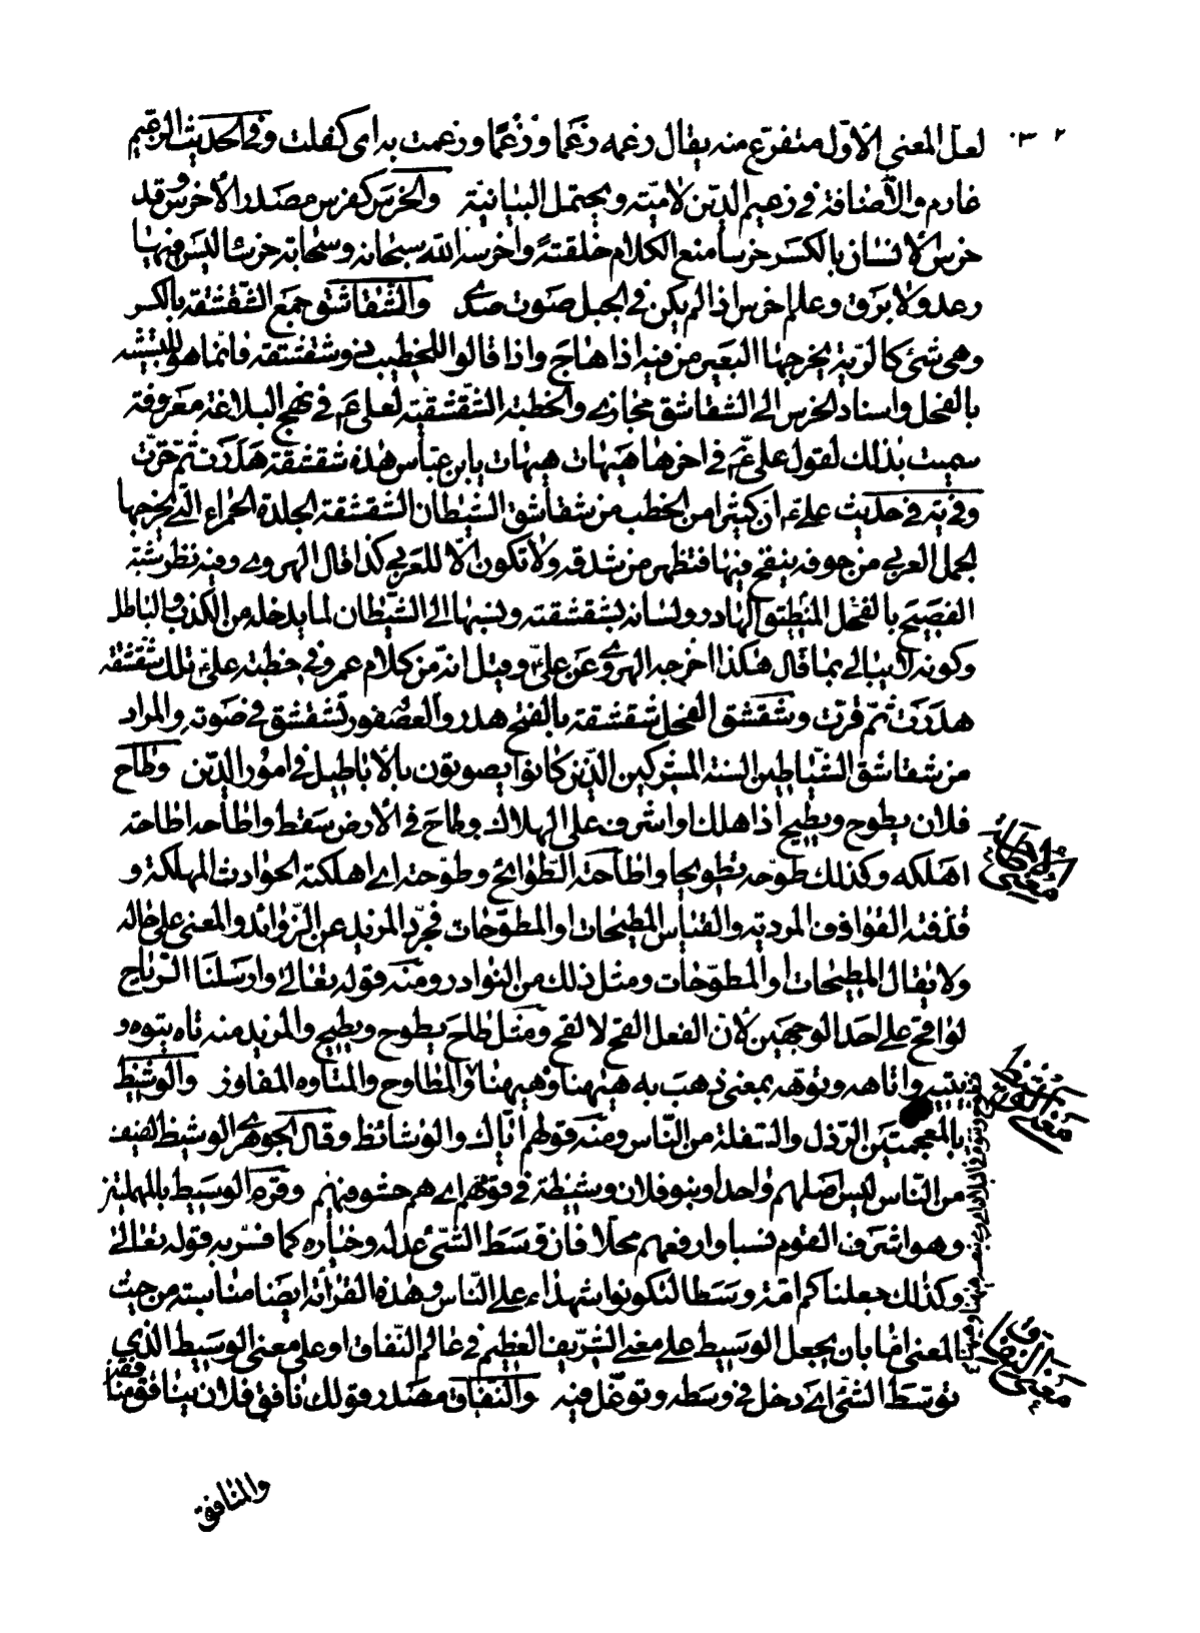 ٣٠٢
لعل المعنى الأول متفرع منه يقال زعمه زعما وزعما وزعمت به اى كفلت وفى الحديث الزعيم
غارم والاضافة فى زعيم الدين لامية ويحتمل البيانية والخرس كفرس مصدر الأخرس وقد
خرس الانسان بالكسر خرسا منع الكلام خلقة وأخرسه الله سبحانه وسحابة خرساء ليس فيها
رعد ولا برق وعلم اخرس اذا لم يكن فى الجبل صوت صدى والشقاشق جمع الشقشقة بالكسر
وهى شئ كالرية يخرجها البعير من فيه اذا هاج واذا قالوا للخطيب ذو شقشقة فانما هو للتشبيه
بالفحل واسناد الخرس الى الشقاشق مجازى والخطبة الشقشقية لعلى ع فى نهج البلاغة معروفة
سميت بذلك لقول على ع فى اخرها هيهات هيهات يابن عباس هذه شقشقة هدرت ثم قرت
وفى يه فى حديث على ع ان كثيرا من الخطب من شقاشق الشيطان الشقشقة الجلدة الحمراء التى يخرجها
الجمل العربى من جوفه ينفخ فيها فتظهر من شدقه ولا تكون الا للعربى كذا قال الهروى وفيه نظر شبه
الفصيح بالفحل الهادر ولسانه بشقشقته ونسبها الى الشيطان لما يدخله من الكذب والباطل
وكونه لا يبالى بما قال هكذا اخرجه الهروى عن على وقيل انه من كلام عمر وفى خطبة على تلك شقشقة
هدرت ثم قرت وشقشق الفحل شقشقة بالفتح هدر والعصفور تشقشق فى صوته والمراد
من شقاشق الشياطين السنة المشركين الذين كانوا يصوتون بالأباطيل فى امور الدين وطاح
فلان يطوح ويطيح اذا هلك او اشرف على الهلاك وطاح فى الأرض سقط واطاحه اطاحة
اهلكه وكذلك طوحه تطويحا واطاحته الطوائح وطوحته اى اهلكته الحوادث المهلكة و
قذفته القواذف المردية والقياس المطيحات او المطوحات فجرد المزيد عن الزوائد والمعنى على حاله
ولا يقال المطيحات أو المطوحات ومثل ذلك من النوادر ومنه قوله تعالى وارسلنا الرياح
لواقح على احد الوجهين لأن الفعل القح لا لقح ومثل طاح يطوح ويطيح والمزيد منه تاه يتوه و
يتيه واتاهه وتوهه بمعنى ذهب به هيهنا وهيهنا والمطاوح والمتاوه المفاوز والوشيظ
بالمعجمتين الرذل والسفلة من الناس ومنه قولهم اياك والوشائظ وقال الجوهرى الوشيظ لفيف
من الناس ليس اصلهم واحدا وبنو فلان وشيظة فى قومهم اى هم حشو فيهم وقرئ الوسيط بالمهملتين
وهو اشرف القوم نسبا وارفعهم محلا فان وسط الشئ عدله وخياره كما فسر به قوله تعالى
وكذلك جعلناكم امة وسطا لتكونوا شهداء على الناس وهذه القرائة ايضا مناسبة من حيث
المعنى اما بان يجعل الوسيط على معنى الشريف العظيم فى عالم النفاق او على معنى الوسيط الذى
توسط الشئ اى دخل فى وسطه وتوغل فيه والنفاق مصدر قولك نافق فلان ينافق منافقة
معنى الاطاحة
معنى الوشيظ
معنى النفاق
والمنافق